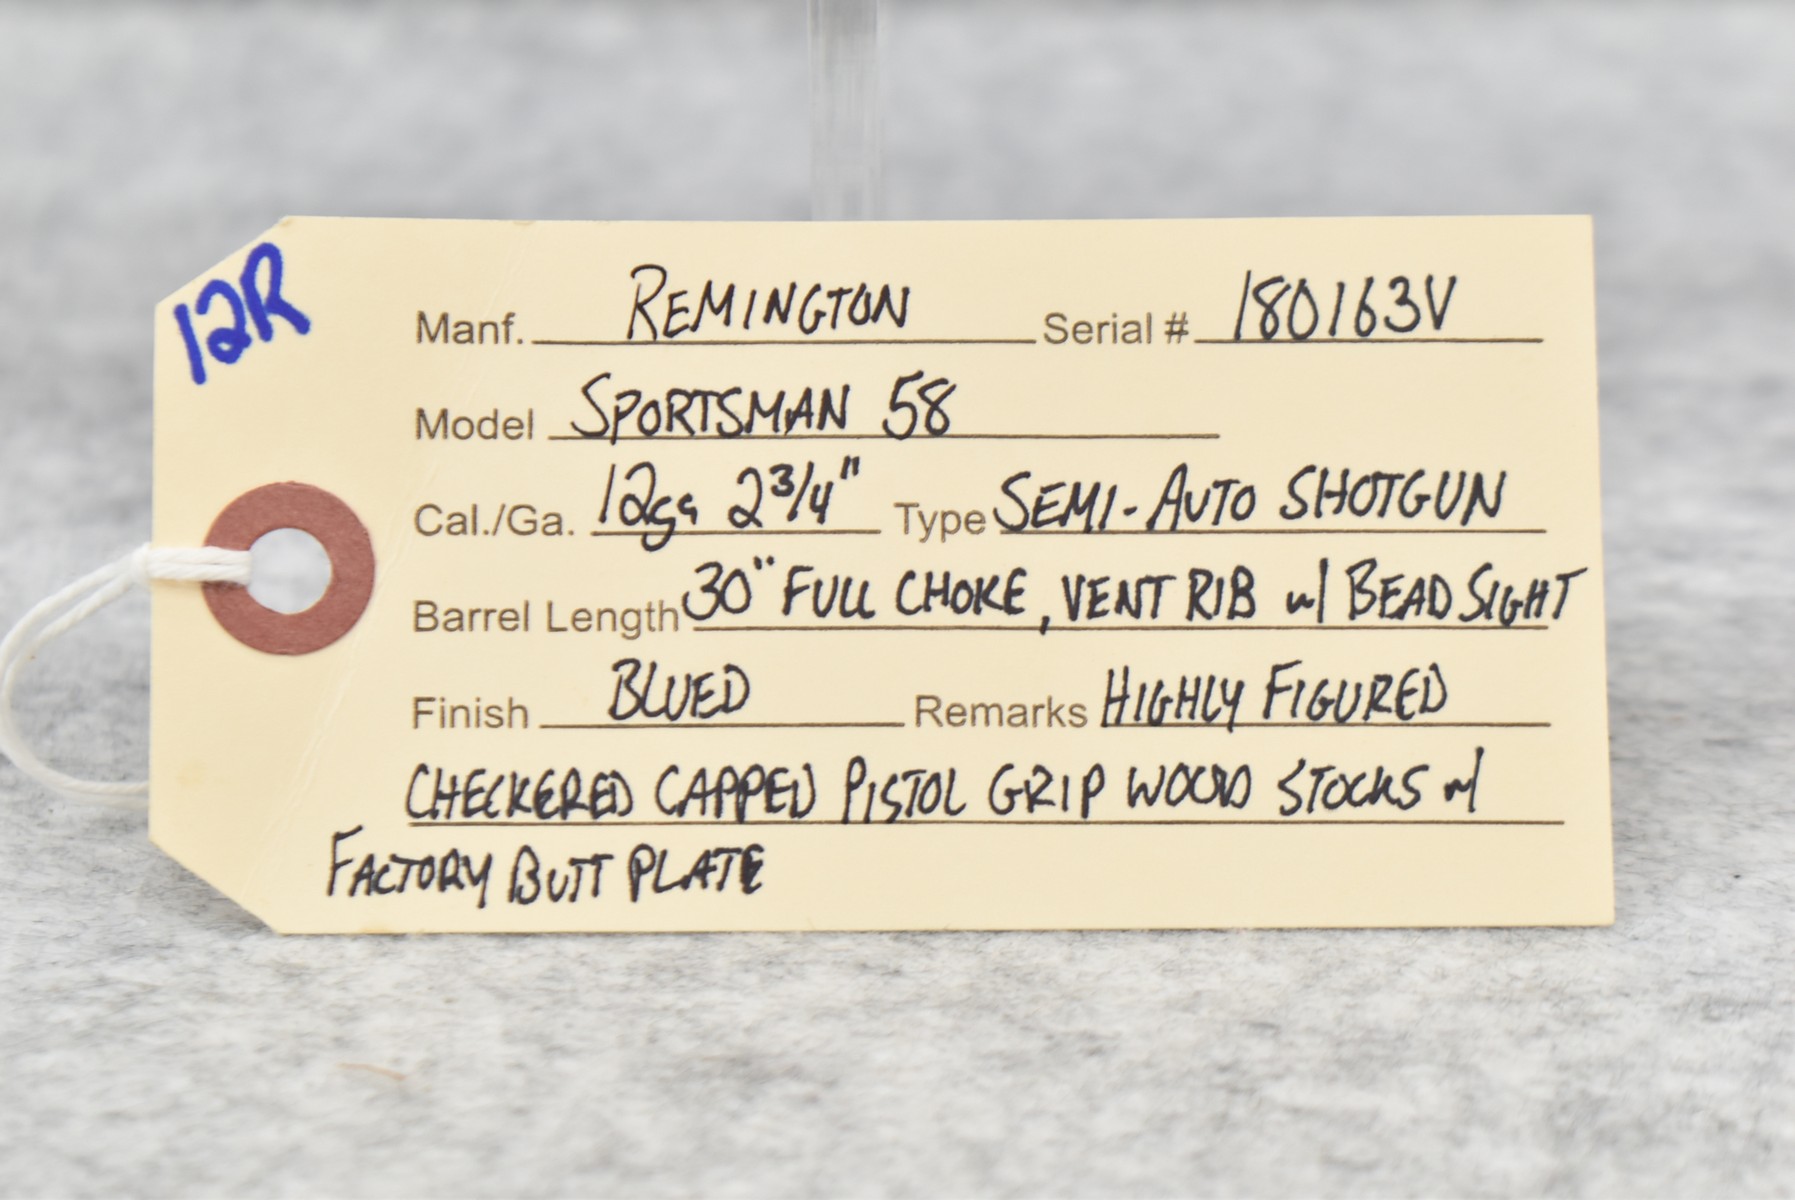 12R
Manf. REMINGTON Serial # 180163V
Model SPORTSMAN 58
Cal./Ga. 12ga 2 3/4" Type SEMI-AUTO SHOTGUN
Barrel Length 30" FULL CHOKE, VENT RIB w/ BEAD SIGHT
Finish BLUED Remarks HIGHLY FIGURED
CHECKERED CAPPED PISTOL GRIP WOOD STOCKS w/
FACTORY BUTT PLATE